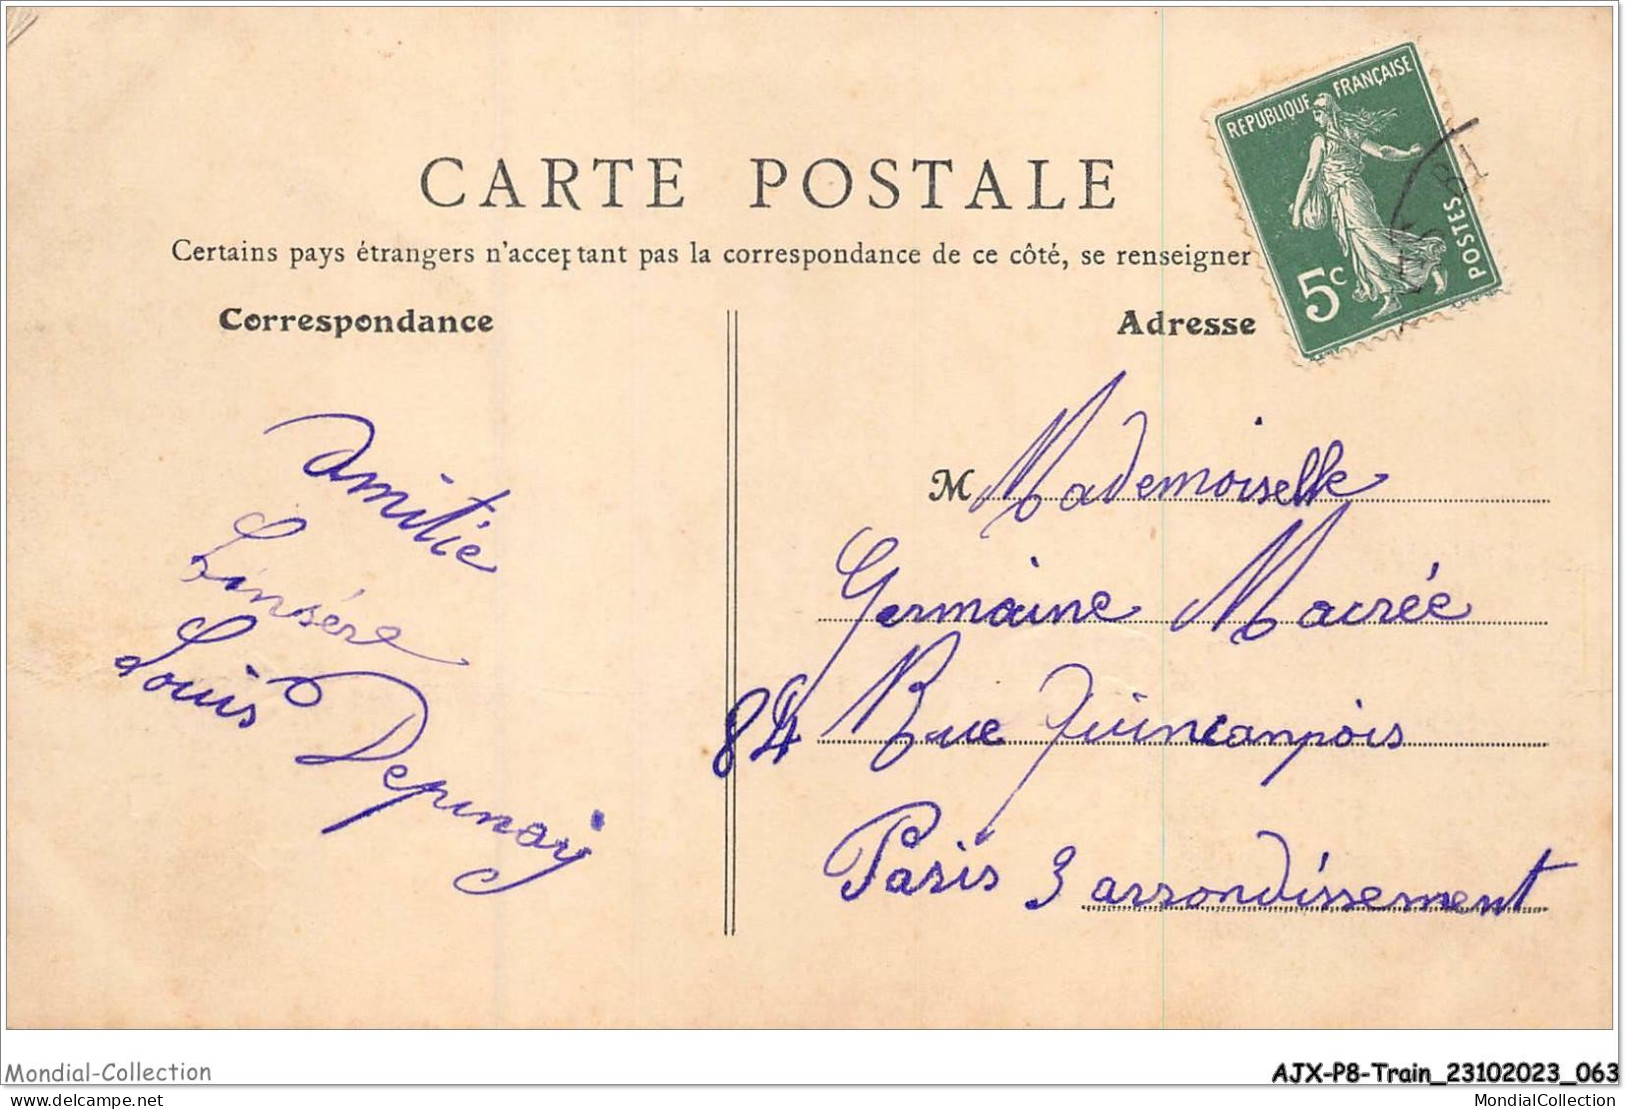 REPUBLIQUE FRANÇAISE
POSTES
5c
CARTE POSTALE
Certains pays étrangers n'acceptant pas la correspondance de ce côté, se renseigner
Correspondance
Adresse
amitié
Sinsére
Louis Depinoij
M Mademoiselle
Germaine Macrée
84 Rue Quincanpois
Paris 3 arrondissement
Mondial-Collection
AJX-P8-Train_23102023_063
delcampe.net
MondialCollection